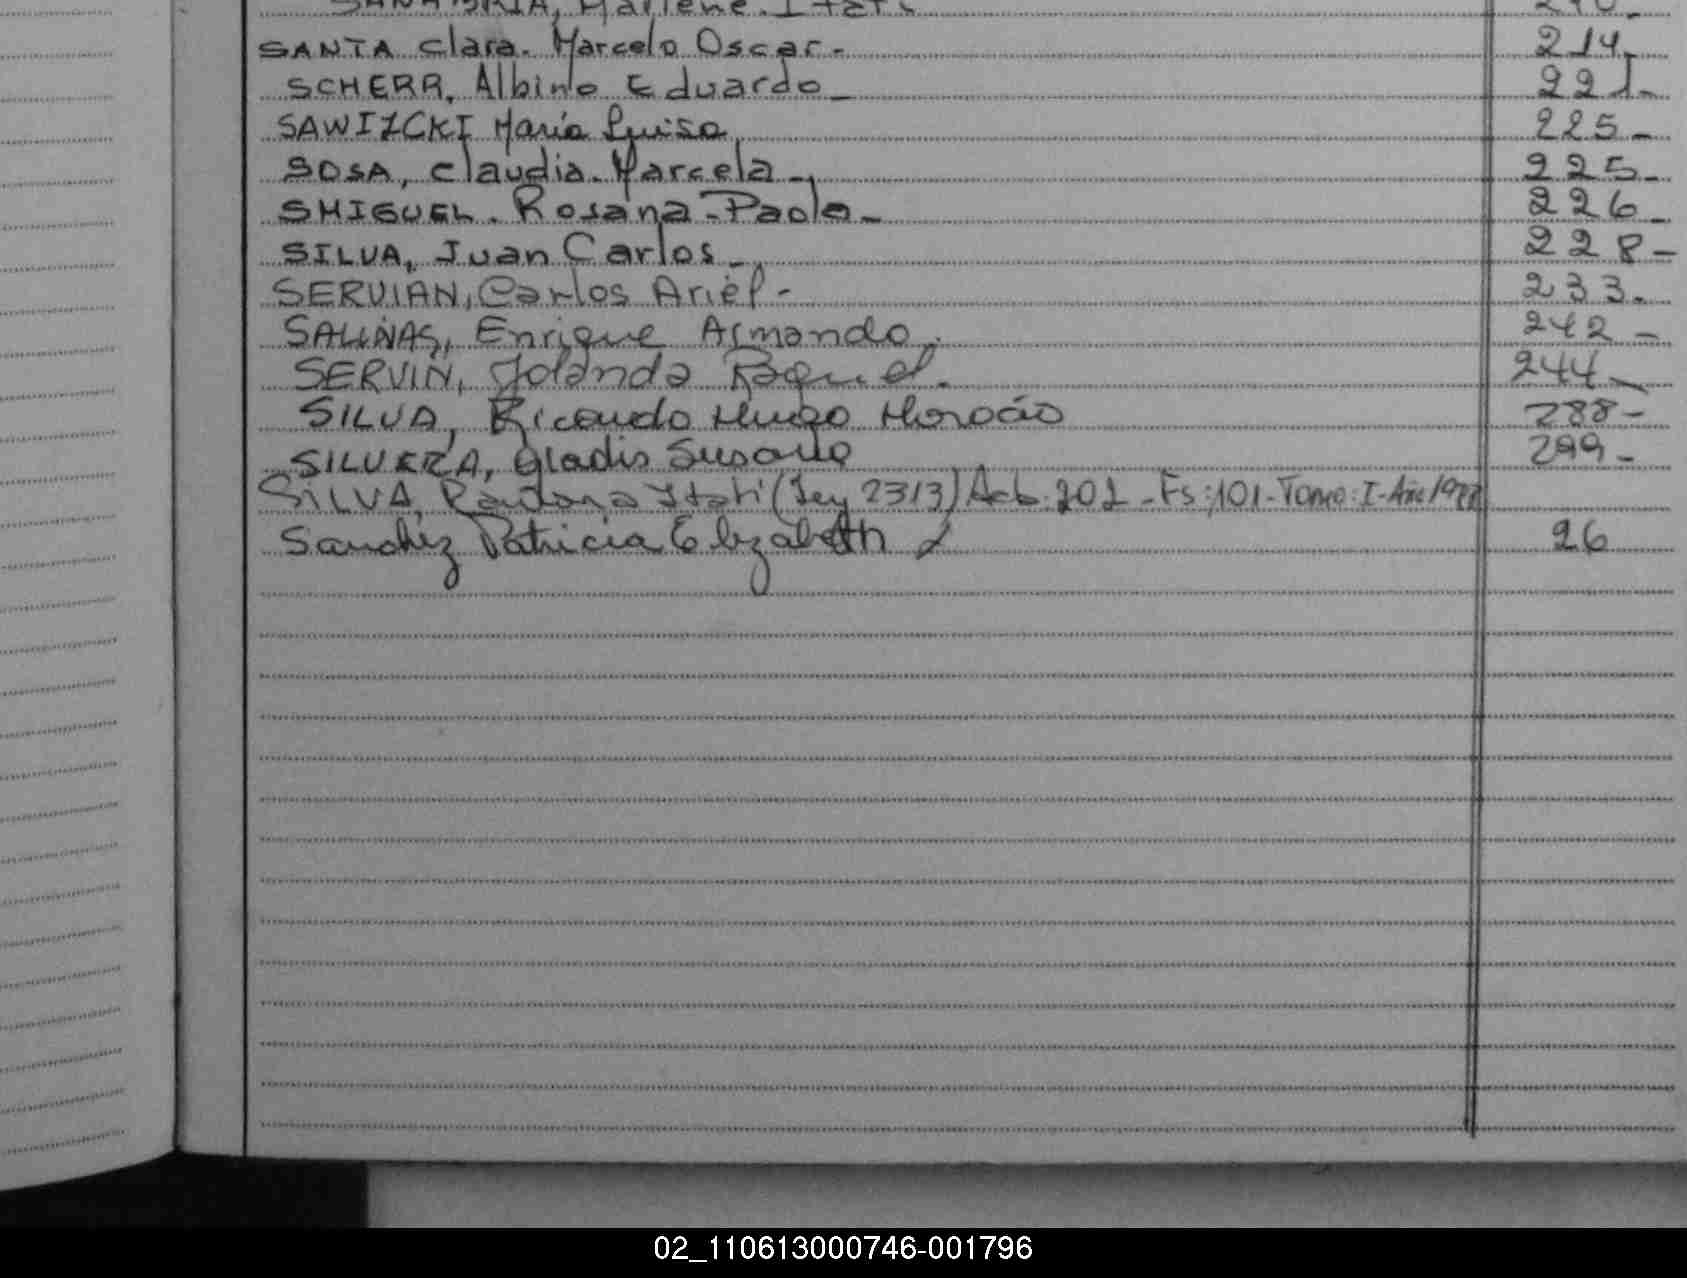 SANABRIA, Marlene. Itatí. 210-
SANTA Clara. Marcelo Oscar- 214-
SCHERR, Albino Eduardo- 221-
SAWIZCKI María Luisa 225-
SOSA, Claudia. Marcela- 225-
SMIGUEL. Rosana-Paola- 226-
SILVA, Juan Carlos- 228-
SERVIAN, Carlos Ariel- 233.
SALINAS, Enrique Armando. 242-
SERVIN, Yolanda Raquel. 244-
SILVA, Ricardo Hugo Horacio 288-
SILVERA, Gladis Susana 299-
SILVA, Itatí (Ley 2313) Acta: 201-Fs: 101-Tomo: I-Año
Sanchez Patricia Elizabeth 26
02_110613000746-001796